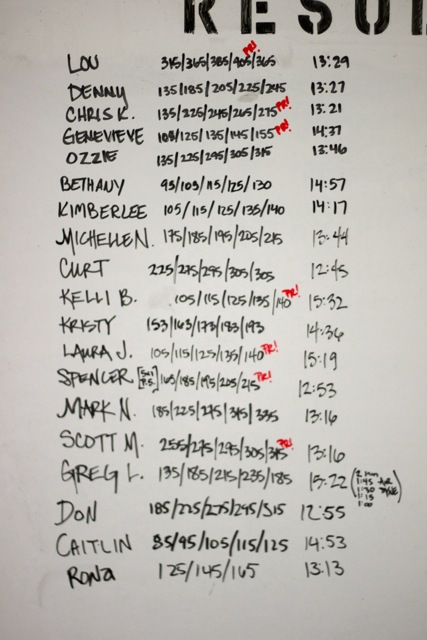 RESUL
LOU 315/365/385/405/365 PR! 13:29
DENNY 135/185/205/225/245 13:27
CHRIS K. 135/225/245/265/275 PR! 13:21
GENEVIEVE 105/125/135/145/155 PR! 14:37
OZZIE 135/225/295/305/315 13:46
BETHANY 95/105/115/125/130 14:57
KIMBERLEE 105/115/125/135/140 14:17
MICHELLE N. 175/185/195/205/215 13:44
CURT 225/275/295/305/305 12:45
KELLI B. 105/115/125/135/140 PR! 15:32
KRISTY 153/163/173/183/193 14:36
LAURA J. 105/115/125/135/140 PR! 15:19
SPENCER 165/185/195/205/215 PR! 12:53
MARK N. 185/225/275/315/335 13:16
SCOTT M. 255/275/295/305/315 PR! 13:16
GREG L. 135/185/215/235/185 15:22 (2 MIN
1:45 AIR
1:30 DYNE
1:15
1:00)
DON 185/225/275/295/315 12:55
CAITLIN 85/95/105/115/125 14:53
RONA 125/145/165 13:13